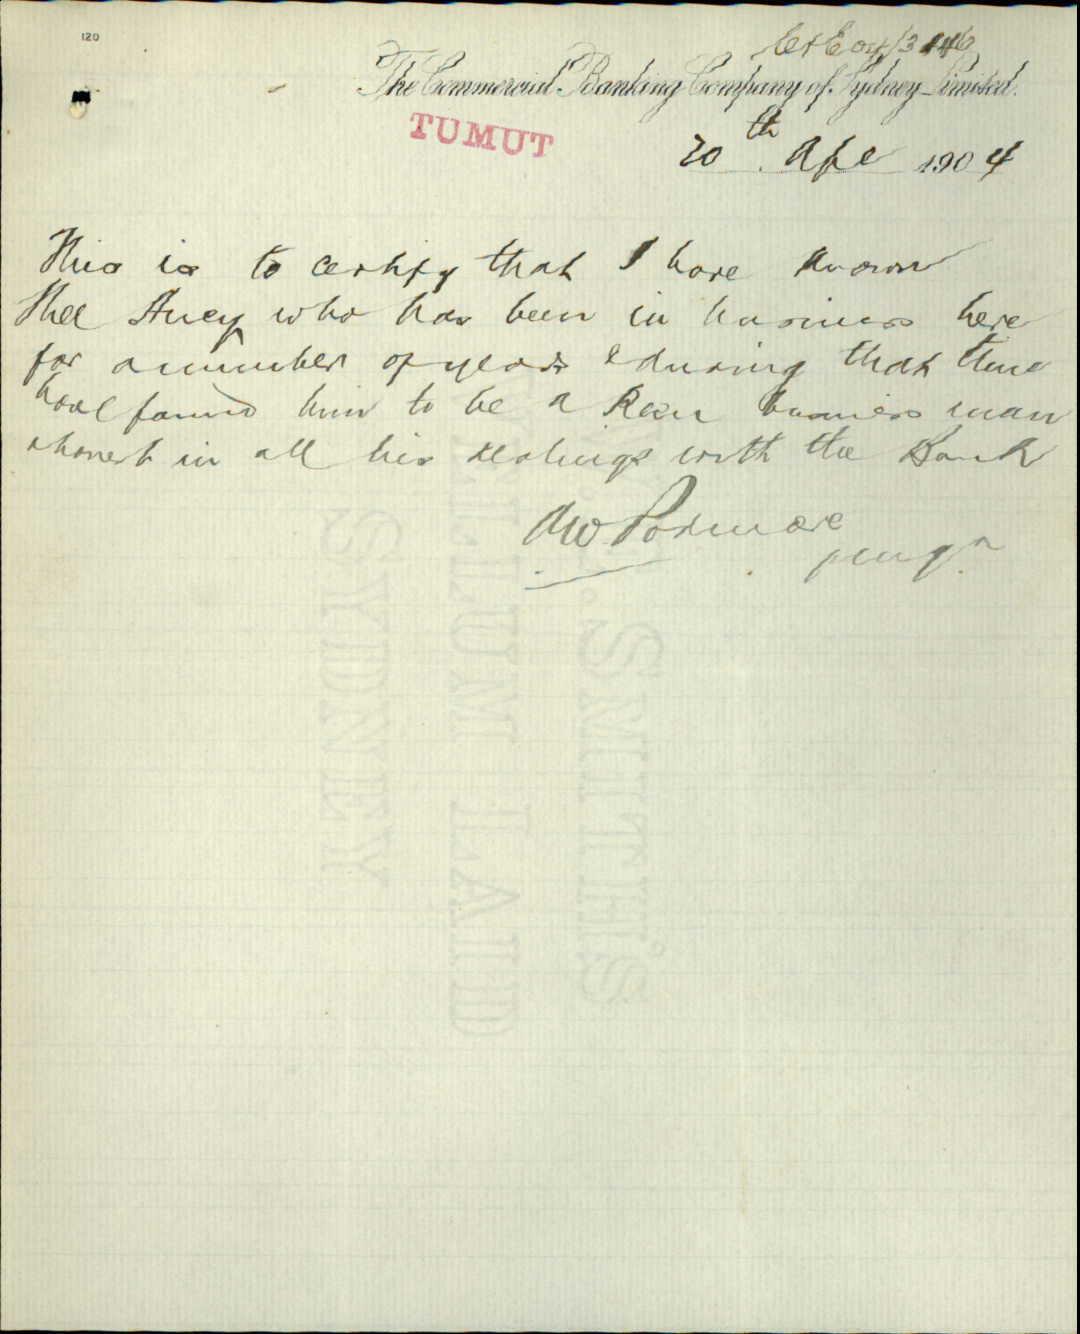 120
C+E 04/3146
The Commercial Banking Company of Sydney Limited.
TUMUT
20th Apl 1904
This is to certify that I have known
who has been in business here
for a number of years & during that time
have found him to be a keen business man
& honest in all his dealings with the Bank
AW Podmore
W. H. SMITH &
VELLUM LAID
SYDNEY